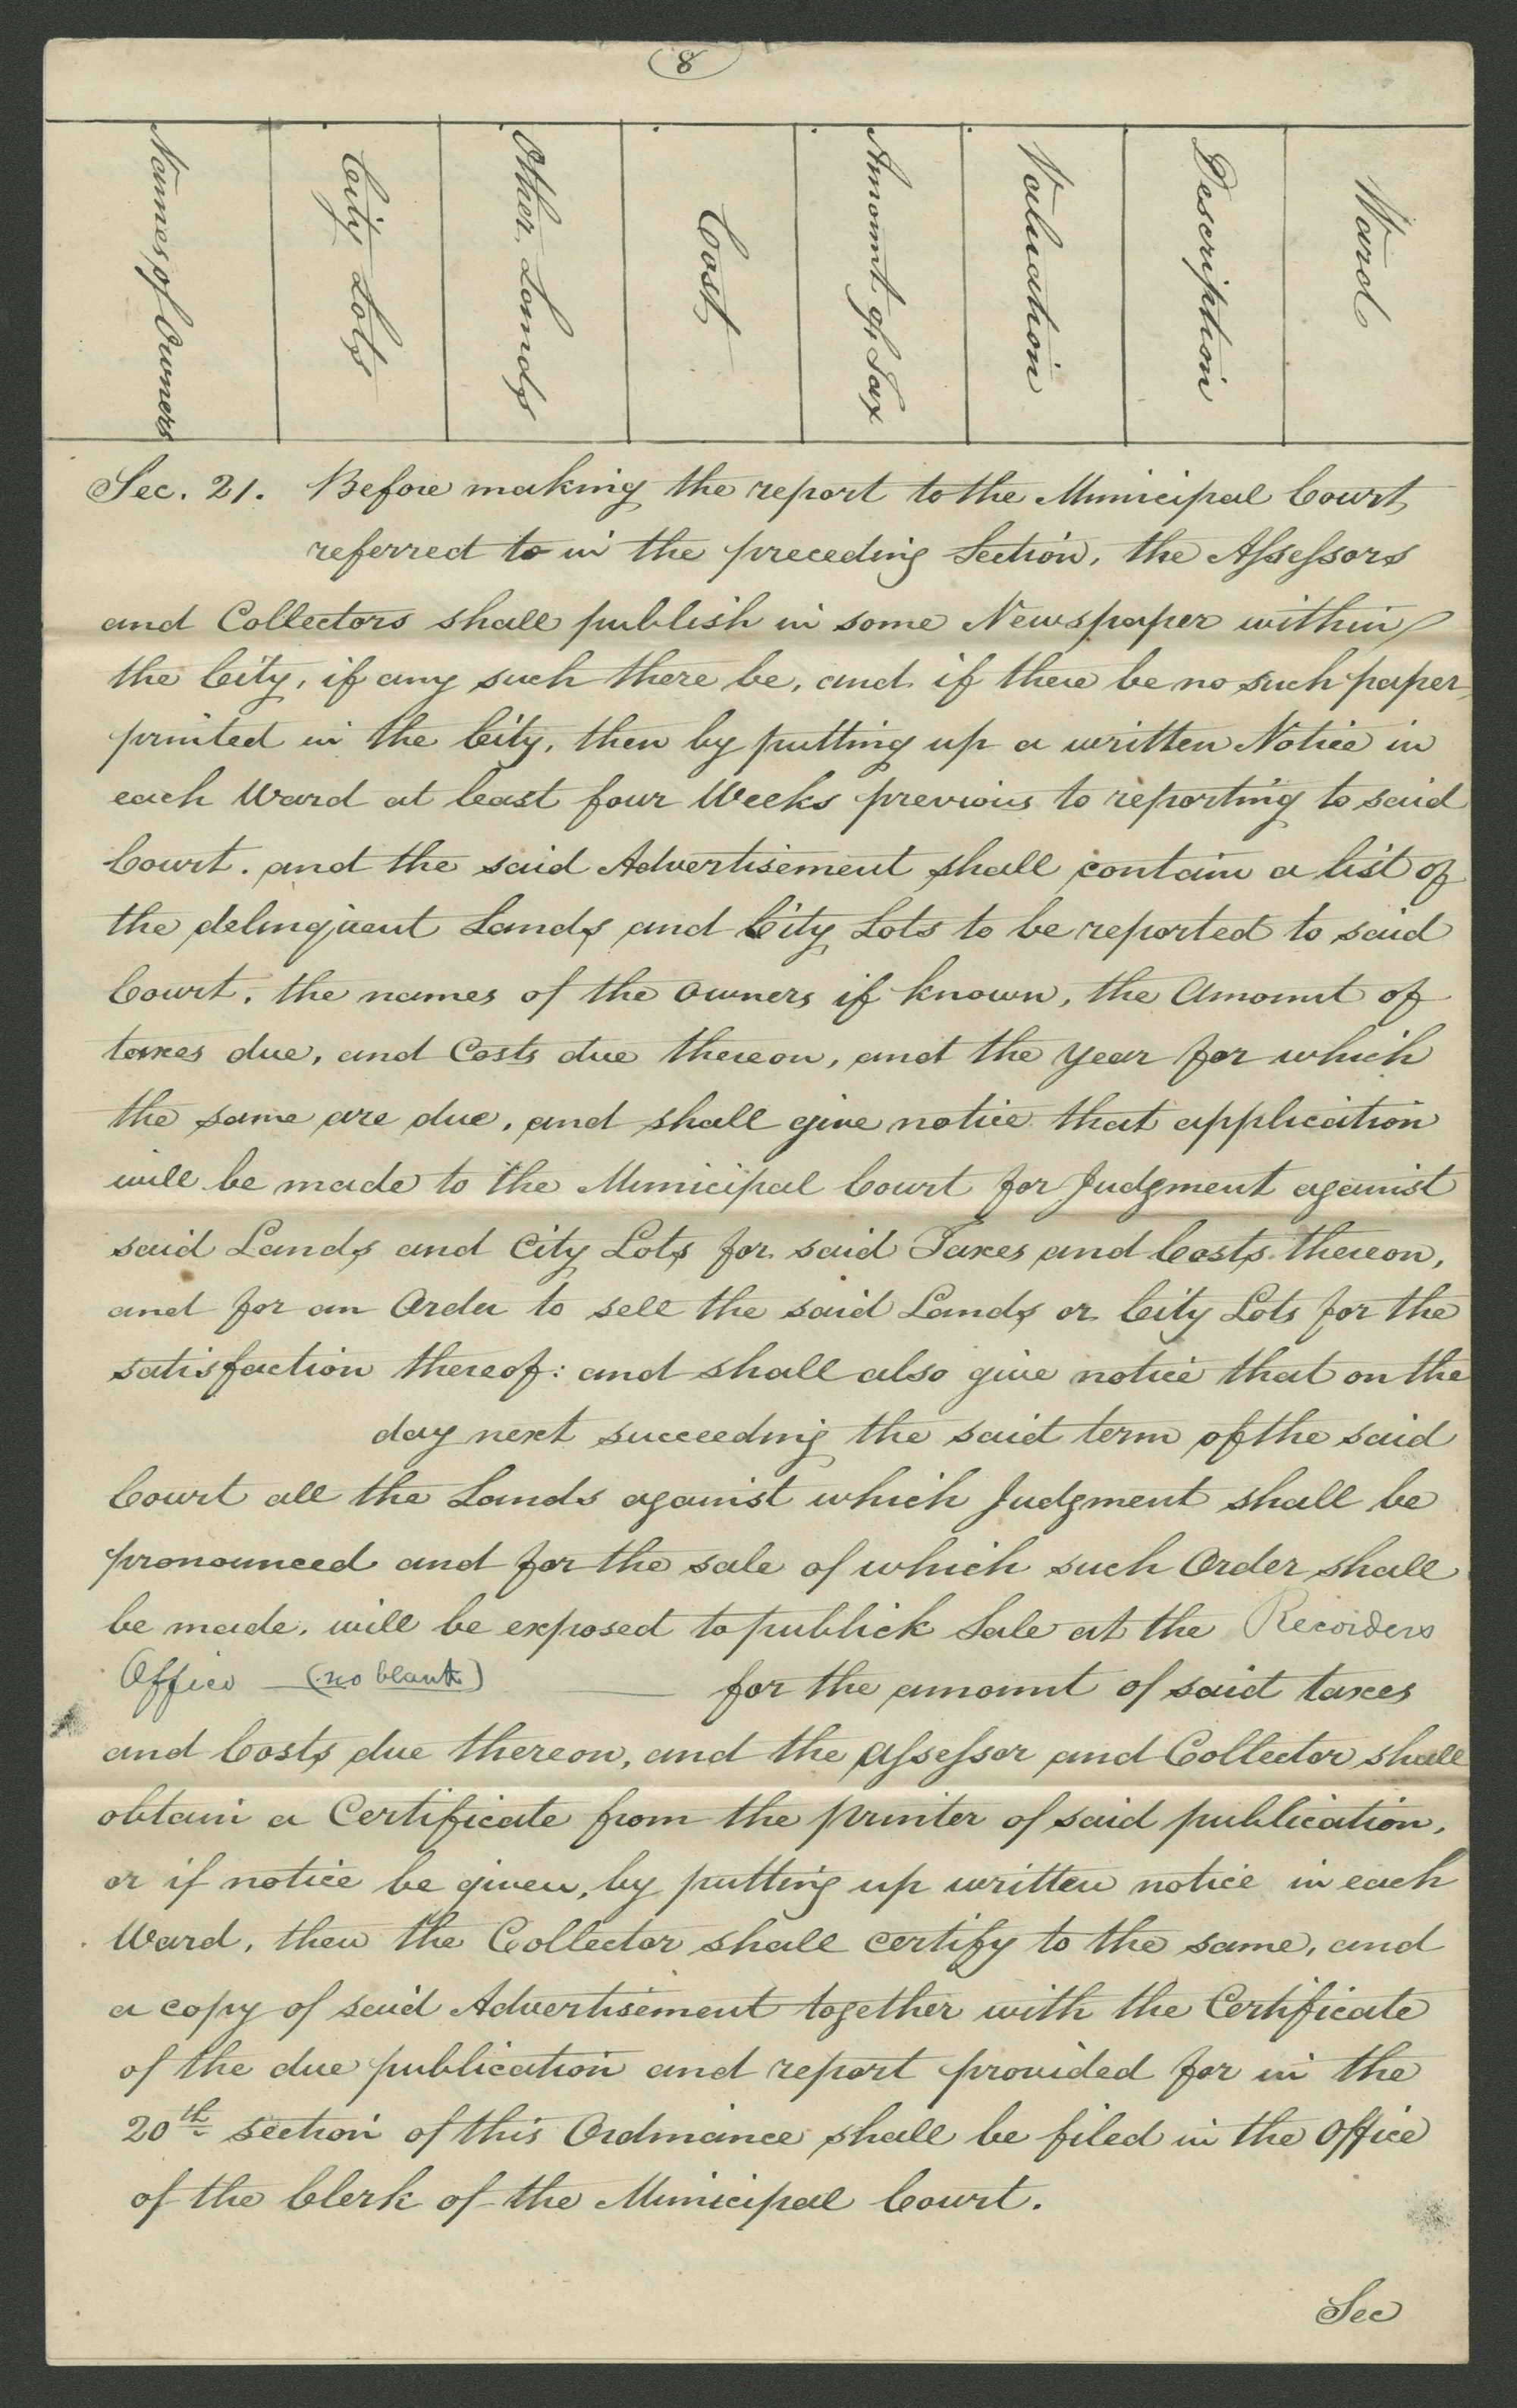 8
Names of Owners
City Lots
Other Lands
Cost
Amount of Tax
Valuation
Description
Ward
Sec. 21. Before making the report to the Municipal Court
referred to in the preceding Section, the Assessors
and Collectors shall publish in some Newspaper within
the City, if any such there be, and if there be no such paper
printed in the City, then by putting up a written Notice in
each Ward at least four Weeks previous to reporting to said
Court. and the said Advertisement shall contain a list of
the delinquent Lands and City Lots to be reported to said
Court, the names of the owners if known, the Amount of
taxes due, and Costs due thereon, and the year for which
the same are due, and shall give notice that application
will be made to the Municipal Court for Judgment against
said Lands and City Lots for said Taxes and Costs thereon,
and for an Order to sell the said Lands or City Lots for the
satisfaction thereof: and shall also give notice that on the
day next succeeding the said term of the said
Court all the Lands against which Judgment shall be
pronounced and for the sale of which such Order shall
be made, will be exposed to publick Sale at the Recorders
Office (no blank) for the amount of said taxes
and Costs due thereon, and the Assessor and Collector shall
obtain a Certificate from the printer of said publication,
or if notice be given, by putting up written notice in each
Ward, then the Collector shall certify to the same, and
a copy of said Advertisement together with the Certificate
of the due publication and report provided for in the
20th section of this Ordinance shall be filed in the Office
of the Clerk of the Municipal Court.
Sec